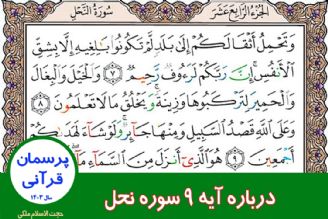 الجُزءُ الرّابِعَ عَشَرَ
سورَةُ النَّحل
وَتَحمِلُ أَثقالَكُم إِلىٰ بَلَدٍ لَم تَكونوا بالِغيهِ إِلّا بِشِقِّ
الأَنفُسِ إِنَّ رَبَّكُم لَرَءوفٌ رَحيمٌ ٧ وَالخَيلَ وَالبِغالَ
وَالحَميرَ لِتَركَبوها وَزينَةً وَيَخلُقُ ما لا تَعلَمونَ ٨
وَعَلَى اللَّهِ قَصدُ السَّبيلِ وَمِنها جائِرٌ وَلَو شاءَ لَهَدىٰكُم
أَجمَعينَ ٩ هُوَ الَّذي أَنزَلَ مِنَ السَّماءِ ماءً
پرسمان
قرآنی
سال ۱۴۰۳
حجت الاسلام ملکی
درباره آیه ۹ سوره نحل